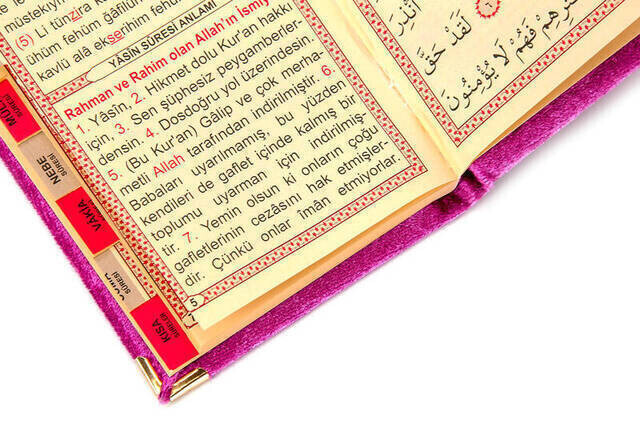 (5) Li tünzira
ühüm fehüm ğâfilûn
kavlü alâ ekserihim fehüm
YÂSİN SÛRESİ ANLAMI
Rahman ve Rahim olan Allah'ın İsmiy
1. Yâsîn, 2. Hikmet dolu Kur'an hakkı
için, 3. Sen şüphesiz peygamberler-
densin. 4. Dosdoğru yol üzerindesin.
5. (Bu Kur'an) Gâlip ve çok merha-
metli Allah tarafından indirilmiştir. 6.
Babaları uyarılmamış, bu yüzden
kendileri de gaflet içinde kalmış bir
toplumu uyarman için indirilmiş-
tir. 7. Yemin olsun ki onların çoğu
gafletlerinin cezâsını hak etmişler-
dir. Çünkü onlar îmân etmiyorlar.
5
NEBE
SÛRESİ
VAKIA
SÛRESİ
SÛRESİ
KISA
SÛRELER
لَقَدْ حَقَّ
فَهُمْ لَا يُؤْمِنُونَ